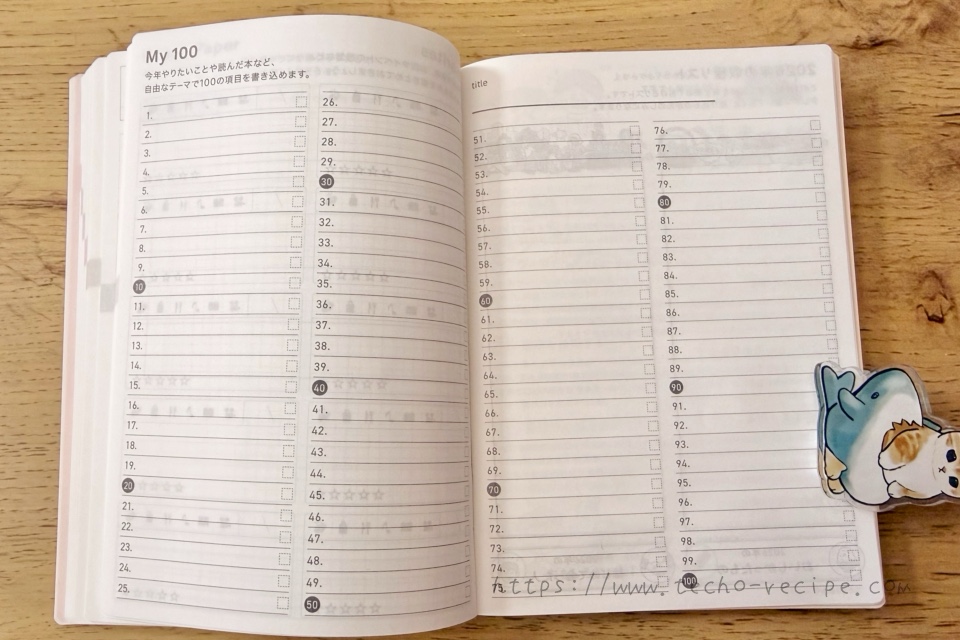 My 100
今年やりたいことや読んだ本など、
自由なテーマで100の項目を書き込めます。
1.
2.
3.
4.
5.
6.
7.
8.
9.
10
11.
12.
13.
14.
15.
16.
17.
18.
19.
20
21.
22.
23.
24.
25.
26.
27.
28.
29.
30
31.
32.
33.
34.
35.
36.
37.
38.
39.
40
41.
42.
43.
44.
45.
46.
47.
48.
49.
50
title
51.
52.
53.
54.
55.
56.
57.
58.
59.
60
61.
62.
63.
64.
65.
66.
67.
68.
69.
70
71.
72.
73.
74.
75.
76.
77.
78.
79.
80
81.
82.
83.
84.
85.
86.
87.
88.
89.
90
91.
92.
93.
94.
95.
96.
97.
98.
99.
100
https://www.techo-recipe.com/